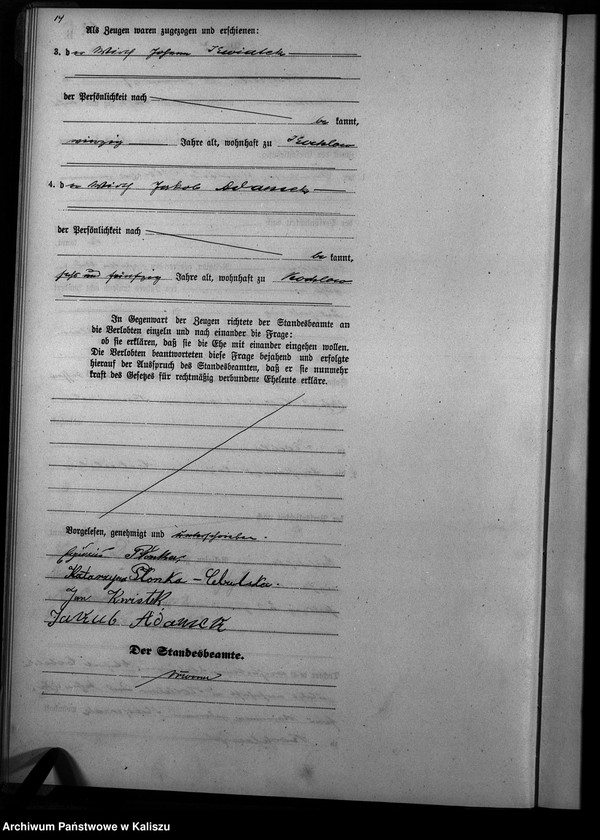 14
Als Zeugen waren zugezogen und erschienen:
3. der Wirth Johann Kwiatek
der Persönlichkeit nach
be kannt,
vierzig Jahre alt, wohnhaft zu
4. der Wirth Jakob Adamek
der Persönlichkeit nach
be kannt,
sechs und fünfzig Jahre alt, wohnhaft zu
In Gegenwart der Zeugen richtete der Standesbeamte an
die Verlobten einzeln und nach einander die Frage:
ob sie erklären, daß sie die Ehe mit einander eingehen wollen.
Die Verlobten beantworteten diese Frage bejahend und erfolgte
hierauf der Ausspruch des Standesbeamten, daß er sie nunmehr
kraft des Gesetzes für rechtmäßig verbundene Eheleute erkläre.
Vorgelesen, genehmigt und unterschrieben.
Płonka
Katarzyna Płonka - Cebulska.
Jan Kwiatek
Jakub Adamek
Der Standesbeamte.
Archiwum Państwowe w Kaliszu